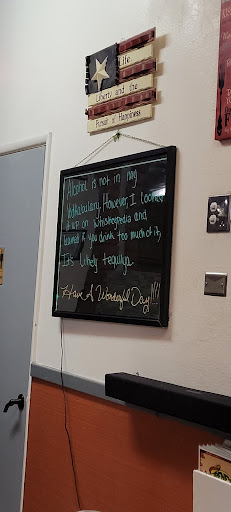 Life,
Liberty and the
Pursuit of Happiness
Alcohol is not in my
Vodkabulary. However, I looked
it up on whiskeypedia and
learned if you drink too much of it,
It's likely tequilya.
Have A Wonderful Day!!!!